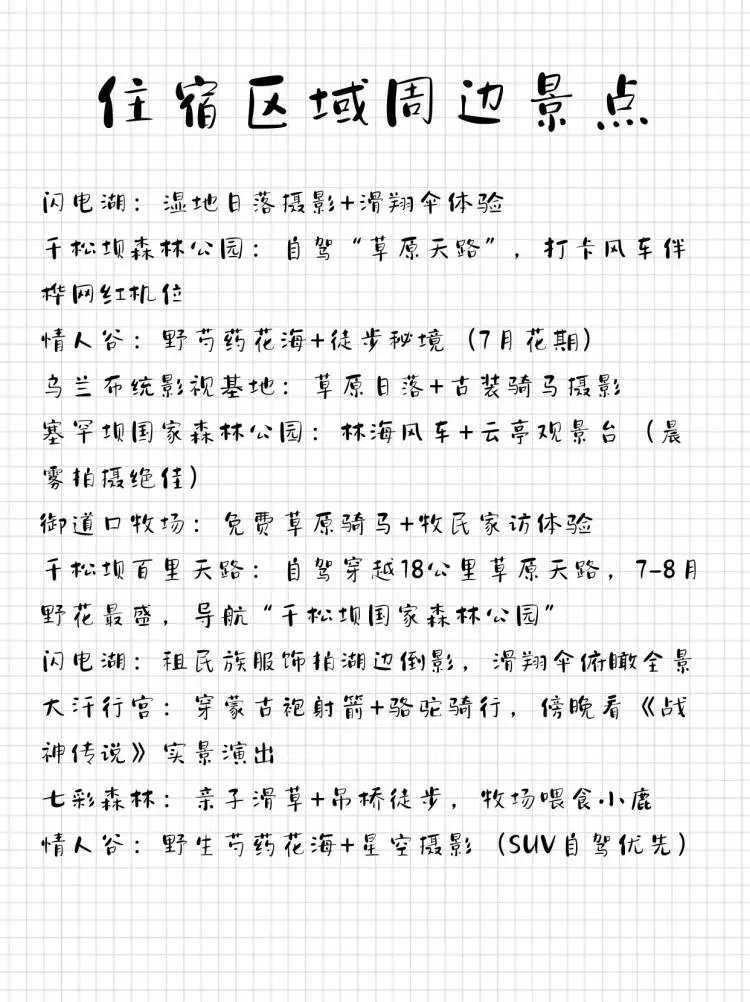 住宿区域周边景点
闪电湖：湿地日落摄影+滑翔伞体验
千松坝森林公园：自驾“草原天路”，打卡风车伴
桦网红机位
情人谷：野芍药花海+徒步秘境（7月花期）
乌兰布统影视基地：草原日落+古装骑马摄影
塞罕坝国家森林公园：林海风车+云亭观景台（晨
雾拍摄绝佳）
御道口牧场：免费草原骑马+牧民家访体验
千松坝百里天路：自驾穿越18公里草原天路，7-8月
野花最盛，导航“千松坝国家森林公园”
闪电湖：租民族服饰拍湖边倒影，滑翔伞俯瞰全景
大汗行宫：穿蒙古袍射箭+骆驼骑行，傍晚看《战
神传说》实景演出
七彩森林：亲子滑草+吊桥徒步，牧场喂食小鹿
情人谷：野生芍药花海+星空摄影（SUV自驾优先）